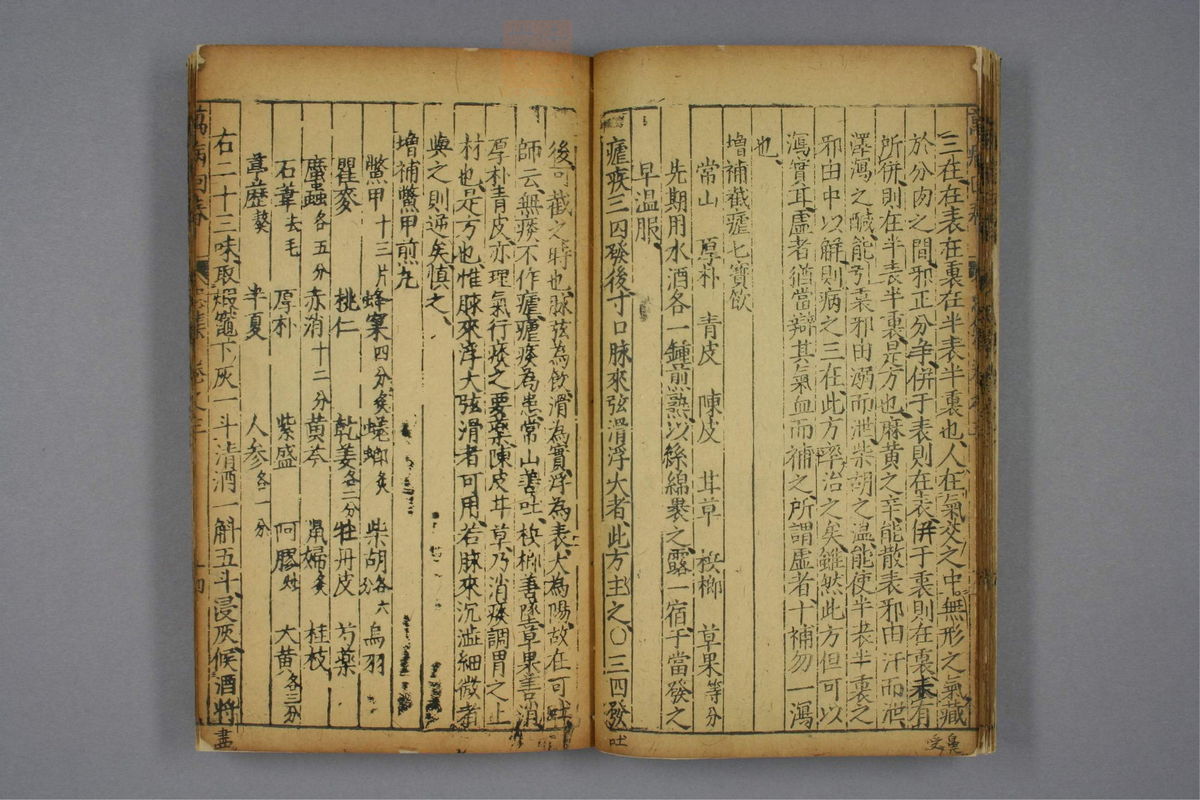 三在在表在裏在半表半裏也人在氣交之中無形之氣藏
於分肉之間邪正分爭併于表則在表併于裏則在裏未有
所併則在半表半裏是方也麻黄之辛能散表邪由汗而泄
澤瀉之醎能引裏邪由溺而泄柴胡之温能使半表半裏之
邪由中以解則病之三在此方率治之矣雖然此方但可以
瀉實耳虛者猶當辯其氣血而補之所謂虛者十補勿一瀉
也
增補截瘧七寳飲
常山 厚朴 青皮 陳皮 甘草 梹榔 草果等分
先期用水酒各一鍾煎熟以絲綿裹之露一宿于當發之
早温服
瘧疾三四發後寸口脉來弦滑浮大者此方主之○三四發
後可截之時也脉弦為飲滑為實浮為表大為陽故在可吐
師云無痰不作瘧瘧痰為患常山善吐梹榔善墜草果善消
厚朴青皮亦理氣行痰之要藥陳皮甘草乃消痰調胃之上
材也是方也惟脉來浮大弦滑者可用若脉來沉澁細微者
與之則逆矣慎之
增補鱉甲煎丸
鱉甲十三片 蜂窠四分炙 蜣螂炙 柴胡各六分 烏羽
瞿麥 桃仁 乾姜各二分 牡丹皮 芍藥
䗪蟲各五分 赤消十二分 黄芩 鼠婦炙 桂枝
石葦去毛 厚朴 紫盛 阿膠 大黄各三分
葶藶熬 半夏 人參各一分
右二十三味取煅竈下灰一斗清酒一斛五斗浸灰候酒將
吐
盡